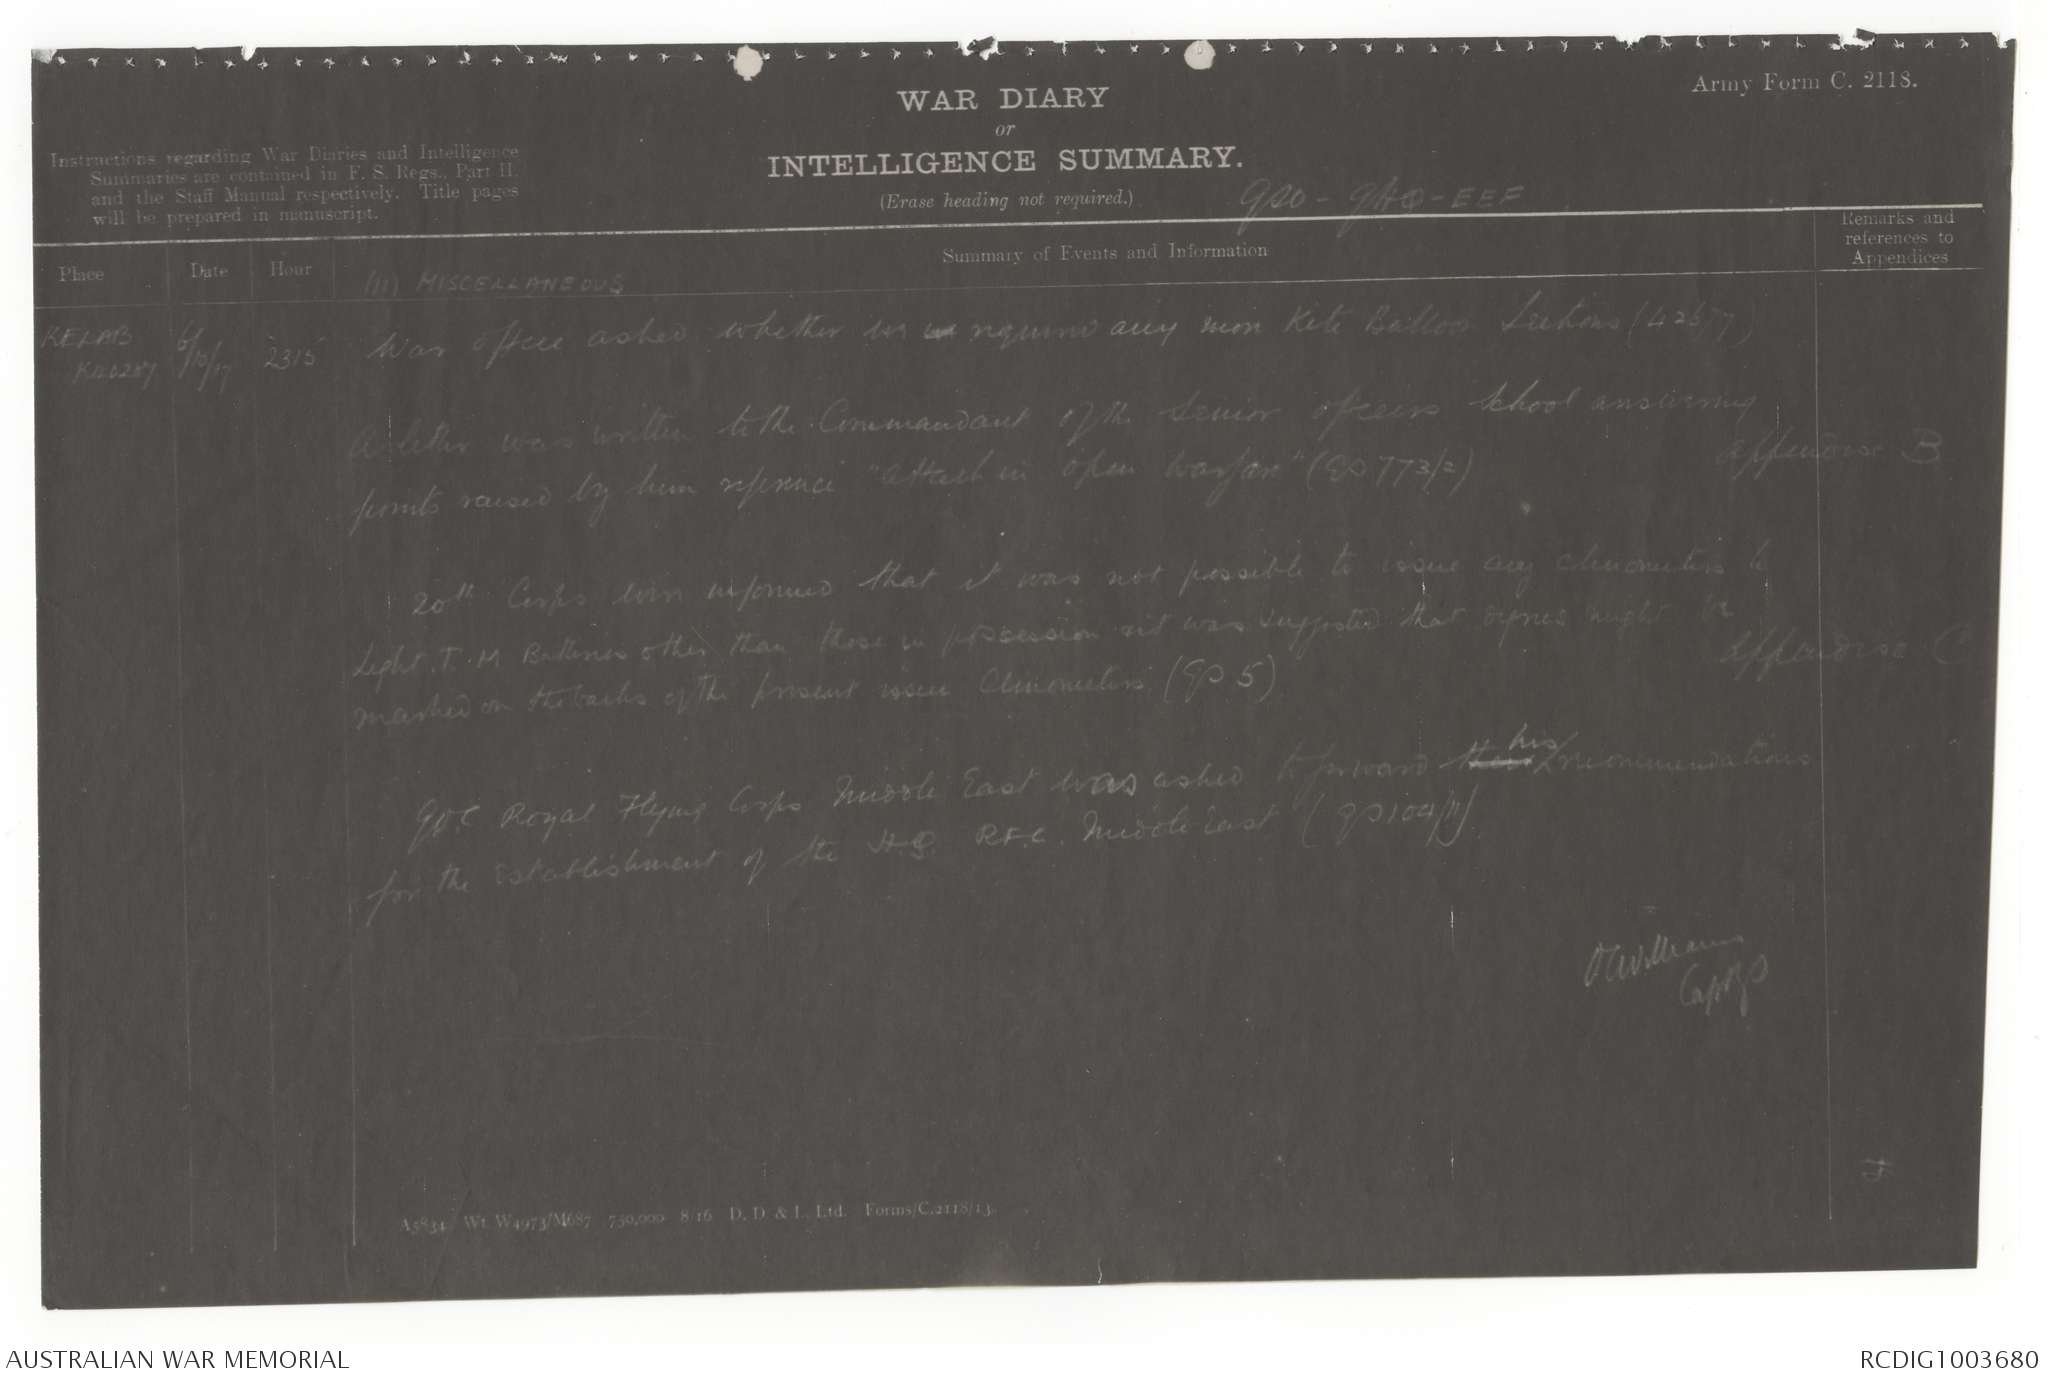 Army Form C. 2118.
WAR DIARY
or
INTELLIGENCE SUMMARY.
(Erase heading not required.)
Instructions regarding War Diaries and Intelligence
Summaries are contained in F. S. Regs., Part II.
and the Staff Manual respectively. Title pages
will be prepared in manuscript.
GSO - GHQ - EEF
Place
Date
Hour
Summary of Events and Information
Remarks and
references to
Appendices
(11) MISCELLANEOUS
KELAB
6/10/17
2315
War office asked whether we required any more Kite Balloon Sections (42577)
A letter was written to the Commandant of the Senior officers School answering
points raised by him reference "attack in open warfare" (GS 773/2)
Appendix B
20th Corps were informed that it was not possible to issue any clinometers to
Light. T. M Batteries other than those in possession it was suggested that might be
marked on the backs of the present issue Clinometers. (GS 5)
Appendix C
GOC Royal Flying Corps Middle East was asked to forward his recommendations
for the establishment of the H.Q. R.F.C. Middle East (GS104/11)
Williams
Capt GS
A5834 Wt. W4973/M687 750,000 8/16 D. D & L. Ltd. Forms/C.2118/13.
AUSTRALIAN WAR MEMORIAL
RCDIG1003680